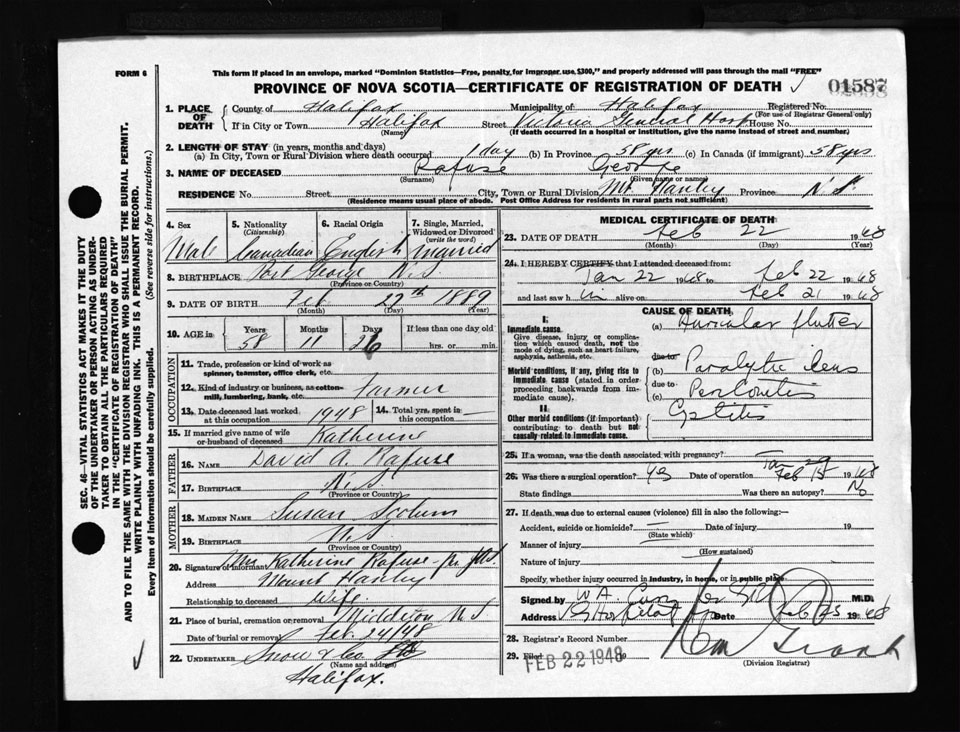 FORM 6
This form if placed in an envelope, marked "Dominion Statistics—Free, penalty for improper use, $300," and properly addressed will pass through the mail "FREE"
PROVINCE OF NOVA SCOTIA—CERTIFICATE OF REGISTRATION OF DEATH
01587
1. PLACE OF DEATH County of Halifax Municipality of Halifax Registered No.
(For use of Registrar General only)
If in City or Town Halifax Street Victoria General Hosp House No.
(Name) (If death occurred in a hospital or institution, give the name instead of street and number)
2. LENGTH OF STAY (in years, months and days)
(a) In City, Town or Rural Division where death occurred 1 day (b) In Province 58 yrs (c) In Canada (if immigrant) 58 yrs
3. NAME OF DECEASED Rafuse George
(Surname) (Given name or names)
RESIDENCE No. Street City, Town or Rural Division Mt. Hanley Province N.S.
(Residence means usual place of abode. Post Office Address for residents in rural parts not sufficient)
4. Sex Male
5. Nationality (Citizenship) Canadian
6. Racial Origin English
7. Single, Married, Widowed or Divorced (write the word) Married
8. BIRTHPLACE Port George N.S
(Province or Country)
9. DATE OF BIRTH Feb 27th 1889
(Month) (Day) (Year)
10. AGE in Years 58 Months 11 Days 26 If less than one day old hrs. or min.
OCCUPATION
11. Trade, profession or kind of work as spinner, teamster, office clerk, etc.
12. Kind of industry or business, as cotton-mill, lumbering, bank, etc. Farmer
13. Date deceased last worked at this occupation 1948 14. Total yrs. spent in this occupation —
15. If married give name of wife or husband of deceased Katherine
FATHER
16. NAME David A. Rafuse
17. BIRTHPLACE N.S
(Province or Country)
MOTHER
18. MAIDEN NAME Susan
19. BIRTHPLACE N.S
(Province or Country)
20. Signature of informant Mrs Katherine Rafuse
Address Mount Hanley
Relationship to deceased Wife
21. Place of burial, cremation or removal Middleton N.S
Date of burial or removal Feb. 24/48
22. UNDERTAKER Snow & Co.
(Name and address)
Halifax.
MEDICAL CERTIFICATE OF DEATH
23. DATE OF DEATH Feb 22 1948
(Month) (Day) (Year)
24. I HEREBY CERTIFY that I attended deceased from:
Jan 22 1948 to Feb 22 1948
and last saw him alive on Feb 21 1948
CAUSE OF DEATH
I.
Immediate cause.
Give disease, injury or complication which caused death, not the mode of dying, such as heart failure, asphyxia, asthenia, etc.
(a) Auricular flutter
due to
Morbid conditions, if any, giving rise to immediate cause (stated in order proceeding backwards from immediate cause).
(b) Paralytic ileus
due to
(c) Peritonitis
II
Other morbid conditions (if important) contributing to death but not causally related to immediate cause.
25. If a woman, was the death associated with pregnancy?
26. Was there a surgical operation? yes Date of operation Feb 15 1948
State findings Was there an autopsy? No
27. If death was due to external causes (violence) fill in also the following:—
Accident, suicide or homicide? — Date of injury 19
(State which)
Manner of injury
(How sustained)
Nature of injury
Specify, whether injury occurred in industry, in home, or in public place
Signed by W A. M.D.
Address V G Hospital Date Feb 25 1948
28. Registrar's Record Number
29. Filed FEB 22 1948 19
(Division Registrar)
SEC. 46—VITAL STATISTICS ACT MAKES IT THE DUTY
OF THE UNDERTAKER OR PERSON ACTING AS UNDER-
TAKER TO OBTAIN ALL THE PARTICULARS REQUIRED
IN THE "CERTIFICATE OF REGISTRATION OF DEATH"
AND TO FILE THE SAME WITH THE DIVISION REGISTRAR WHO SHALL ISSUE THE BURIAL PERMIT.
WRITE PLAINLY WITH UNFADING INK. THIS IS A PERMANENT RECORD.
Every item of information should be carefully supplied. (See reverse side for instructions.)